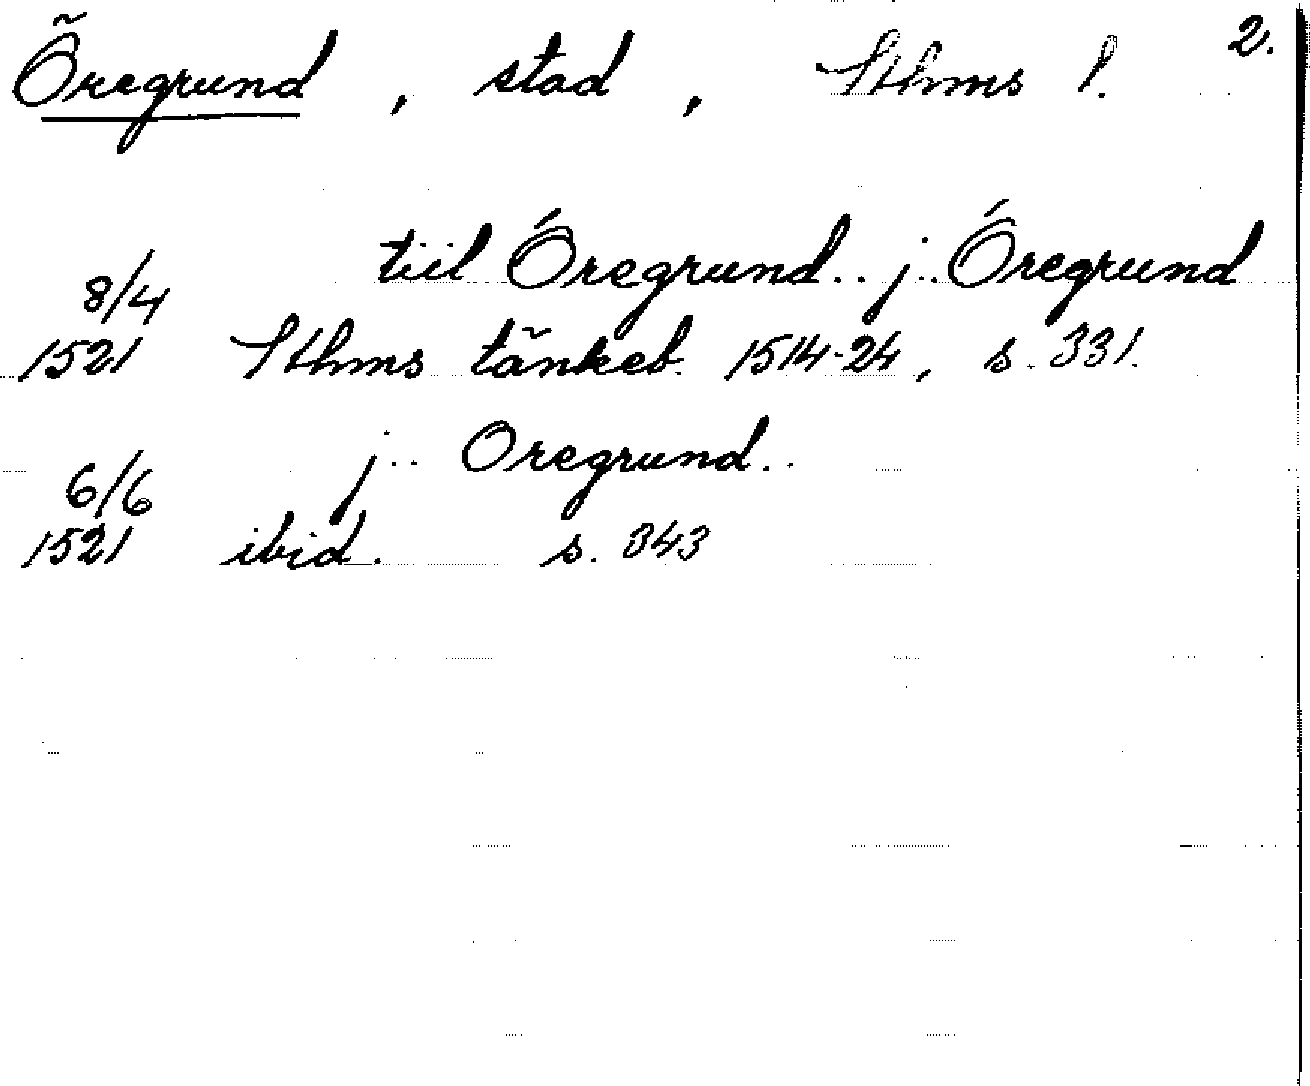 Õregrund, stad, Sthms l. 2.
tiil Óregrund.. j.. Óregrund
8/4
1521 Sthms tänkeb. 1514-24, s. 331.
j... Oregrund..
6/6
1521 ibid. s. 343